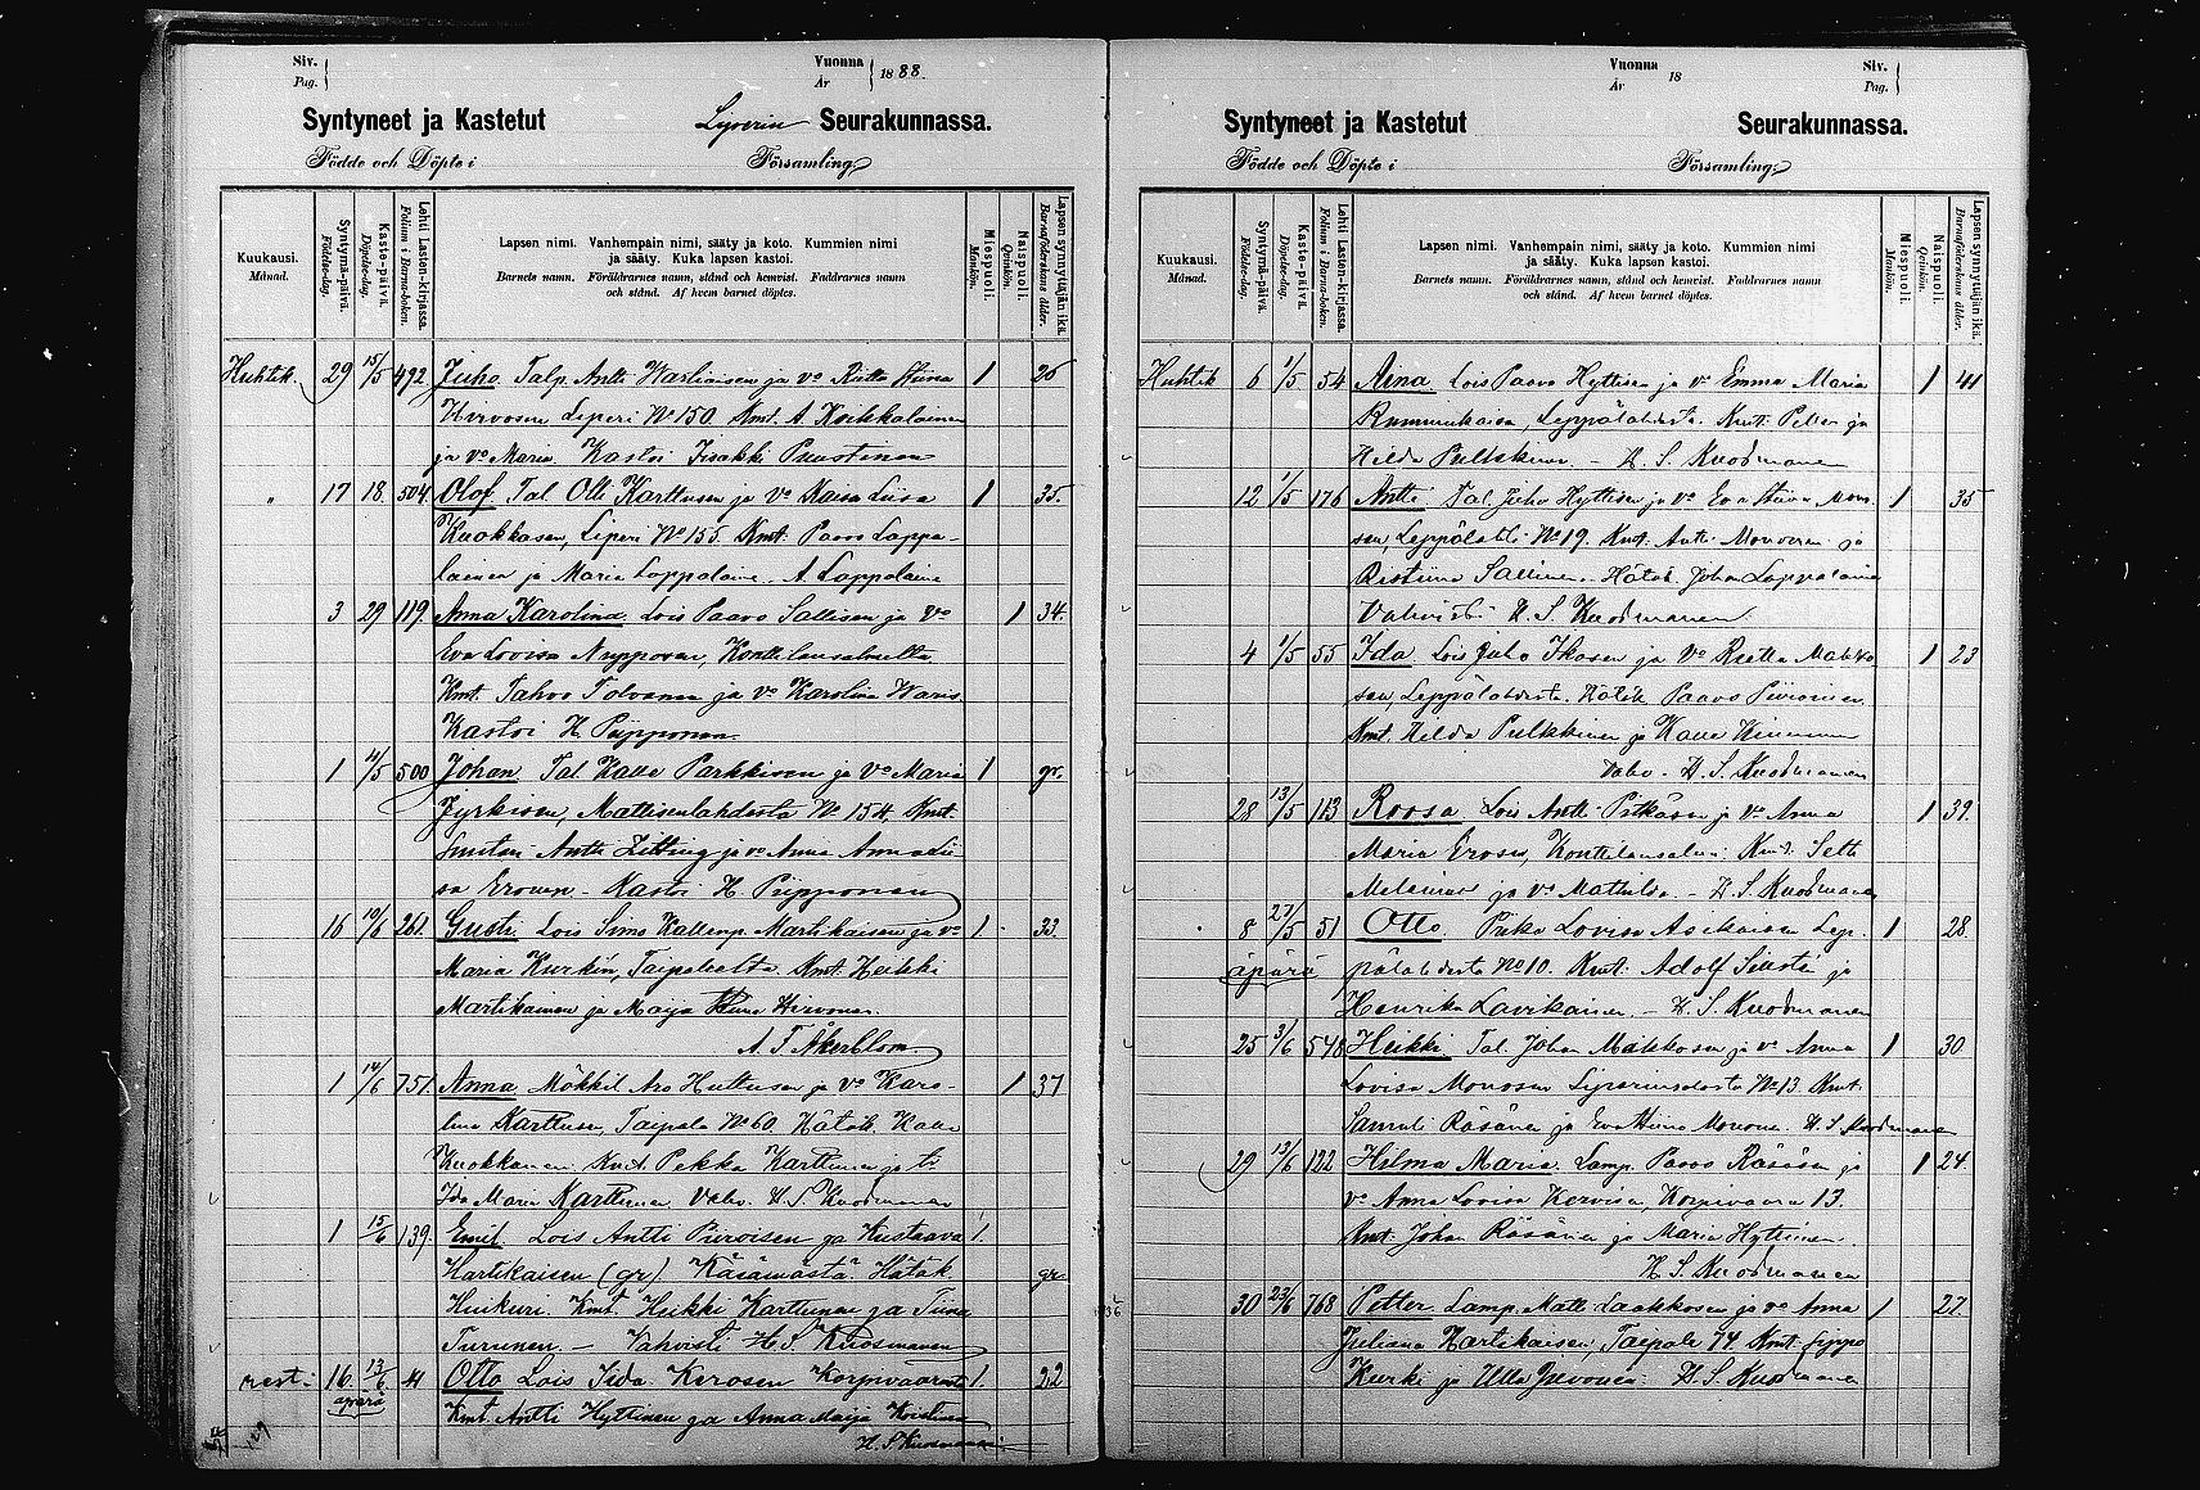 Siv.
Pag.
Vuonna
År
1888.
Syntyneet ja Kastetut Liperin Seurakunnassa.
Födde och Döpte i Församling.
Kuukausi.
Månad.
Syntymä-päivä.
Födelse-dag.
Kaste-päivä.
Döpelse-dag.
Lehti Lasten-kirjassa.
Folium i Barna-boken.
Lapsen nimi. Vanhempain nimi, sääty ja koto. Kummien nimi
ja sääty. Kuka lapsen kastoi.
Barnets namn. Föräldrarnes namn, stånd och hemvist. Faddrarnes namn
och stånd. Af hvem barnet döptes.
Miespuoli.
Mankön.
Naispuoli.
Qvinkön.
Lapsen synnyttäjän ikä.
Barnaföderskans ålder.
Huhtik. 29 15/5 492 Juho. Talp. Antti ja vo Riitta Stiina 1 26
Hirvosen Liperi No 150. Kmt. A. Koikkalainen
ja vo Maria. Kastoi Iisakki Puustinen
" 17 18. 504. Olof. Tal. Olli Karttusen ja Vo Kaisa Liisa 1 35.
Kuokkasen, Liperi No 155. Kmt. Paavo Loppa-
lainen ja Maria Loppalaine. A. Loppalaine
3 29 119. Anna Karolina. Lois Paavo Sallisen ja Vo 1 34.
Eva Lovisa Nupposen, Konttilansalmelta
Kmt. Tahvo Tolvanen ja vo Karolina Waris.
Kastoi H. Piipponen.
1 4/5 500 Johan. Tal. Kalle Parkkisen ja Vo Maria 1 gr.
Jyrkisen, Mattisenlahdesta No 154. Kmt.
Antti Zitting ja vo Anna Anna Lii-
sa Eronen - Kastoi H. Piipponen
16 10/6 261. Gusti. Lois Simo Kallenp. Martikaisen ja vo 1. 33.
Maria Kurkin, Taipaleelta. Kmt. Heikki
Martikainen ja Maija Stiina Hirvonen.
A. F. Åkerblom.
1 14/6 751. Anna Mökkil. Aro Huttusen ja Vo Karo- 1 37
lina Karttusen, Taipale No 60. Hätäk. Kalle
Kuokkanen. Kmt. Pekka Karttunen ja tr
Ida Maria Karttunen. Vahv. H. S. Kuosmanen
1 15/6 139. Emil. Lois Antti Piiroisen ja Kustaava 1.
Hartikaisen (gr). Käsämästä. Hätäk. gr.
Huikuri. Kmt. Heikki Karttunen ja Tiina
Turunen. - Vahvisti H. S. Kuosmanen
16 13/6 41 Otto Lois Iida Kerosen Korpivaarasta 1. 22
äpärä Kmt. Antti Hyttinen ja Anna Maija Koistinen
H. S. Kuosmanen
Vuonna
År
18
Siv.
Pag.
Syntyneet ja Kastetut Seurakunnassa.
Födde och Döpte i Församling.
Kuukausi.
Månad.
Syntymä-päivä.
Födelse-dag.
Kaste-päivä.
Döpelse-dag.
Lehti Lasten-kirjassa.
Folium i Barna-boken.
Lapsen nimi. Vanhempain nimi, sääty ja koto. Kummien nimi
ja sääty. Kuka lapsen kastoi.
Barnets namn. Föräldrarnes namn, stånd och hemvist. Faddrarnes namn
och stånd. Af hvem barnet döptes.
Miespuoli.
Mankön.
Naispuoli.
Qvinkön.
Lapsen synnyttäjän ikä.
Barnaföderskans ålder.
Huhtik 6 1/5 54 Aina. Lois Paavo Hyttisen ja vo Emma Maria 1 41
Leppälahdesta. Kmt: Petter ja
Hilda Pulkkinen. - H. S. Kuosmanen
12 1/5 176 Antti Tal. Juho Hyttisen ja Vo Eva Stiina Mono- 1 35
sen, Leppälahti No 19. Kmt: Antti Mononen ja
Ristiina Sallinen. Hätäk. Johan Loppalaine
Vahvisti H. S. Kuosmanen
4 1/5 55 Ida. Lois Juho Ikosen ja Vo Reetta Makko- 1 23
sen, Leppälahdesta. Hätäk. Paavo Piiroinen
Kmt. Hilda Pulkkinen ja Kalle
Vahv. H. S. Kuosmanen
28 13/5 113 Roosa Lois Antti Pitkäsen ja Vo Anna 1 39.
Maria Erosen, Konttilansalmi. Kmt:
ja vo Mathilda. - H. S. Kuosmanen
8 27/5 51 Otto. Piika Lovisa Asikaisen Lep- 1 28.
äpärä pälahdesta No 10. Kmt: Adolf ja
Henrika Lavikainen. - H. S. Kuosmanen
25 3/6 548 Heikki. Tal. Johan Makkosen ja vo Anna 1 30
Lovisa Monosen No 13. Kmt.
Samuli Räsänen ja Eva Stiina Mononen. H. S. Kuosmanen
29 13/6 122 Hilma Maria. Lamp. Paavo Räsäsen ja 1 24.
vo Anna Lovisa Kervisen, Korpivaara 13.
Kmt: Johan Räsänen ja Maria Hyttinen.
H. S. Kuosmanen
30 23/6 768 Petter. Lamp. Matti Laakkosen ja vo Anna 1 27.
Juliana Hartikaisen, Taipale 74. Kmt:
Kurki ja Ulla Juvonen. H. S. Kuosmanen